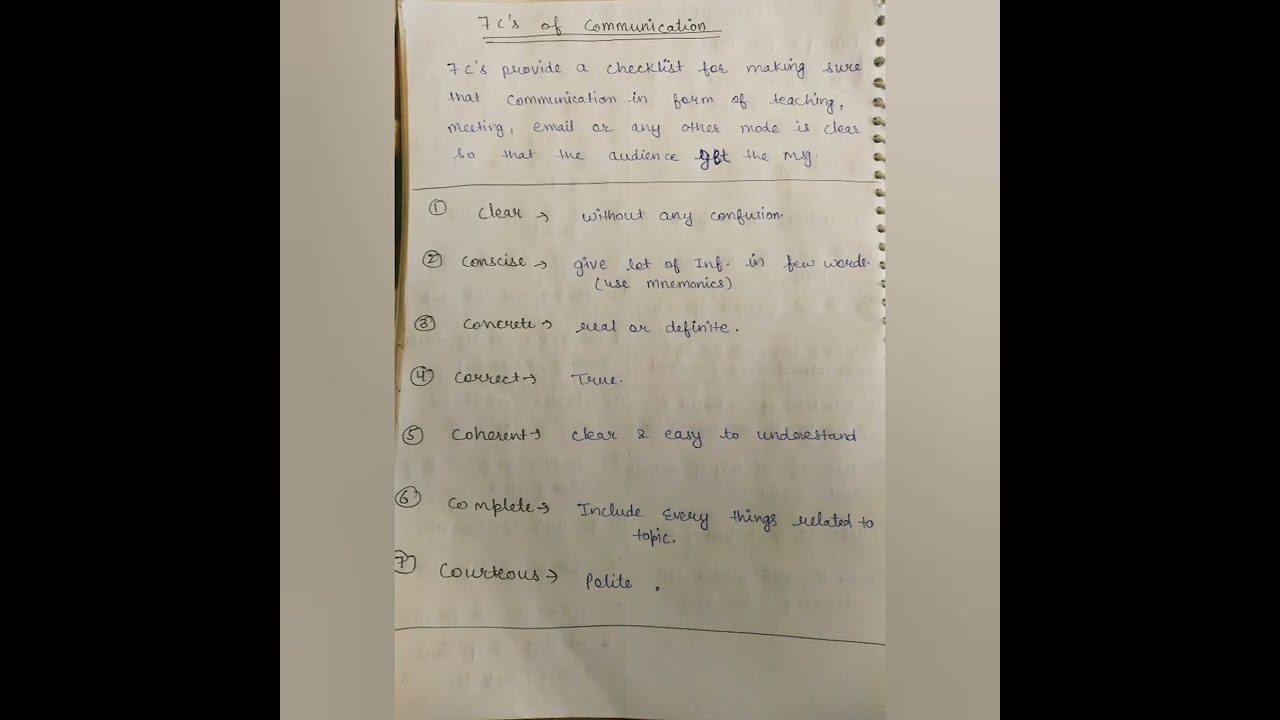 7 C's of Communication
7 C's provide a checklist for making sure
that communication in form of teaching,
meeting, email or any other mode is clear
so that the audience get the msg.
① Clear → without any confusion.
② Conscise → give lot of Inf. in few words.
(use mnemonics)
③ Concrete → real or definite.
④ Correct → True.
⑤ Coherent → clear & easy to understand
⑥ Complete → Include Every things related to
topic.
⑦ Courteous → Polite .